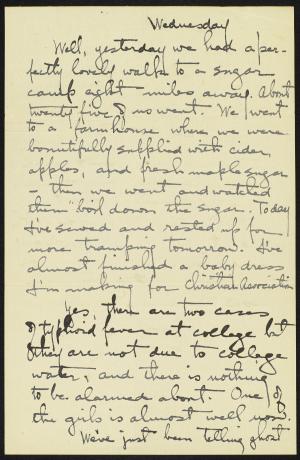 Wednesday
Well, yesterday we had a per-
fectly lovely walk to a sugar
camp eight miles away. About
twenty five of us went. We went
to a farmhouse where we were
bountifully supplied with cider,
apples, and fresh maple sugar
- then we went and watched
them boil down the sugar. Today
I've sewed and rested up for
more tramping tomorrow. I've
almost finished a baby dress
I'm making for Christian Association
Yes, there are two cases
of typhoid fever at college but
they are not due to college
water, and there is nothing
to be alarmed about. One of
the girls is almost well now.
We've just been telling ghost